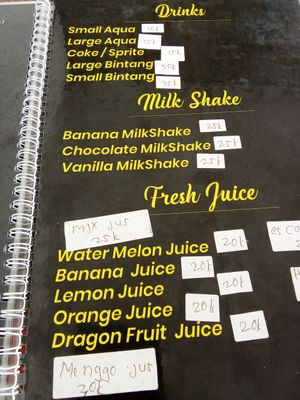 Drinks
Small Aqua 10k
Large Aqua 15k
Coke / Sprite 15k
Large Bintang 55k
Small Bintang 35k
Milk Shake
Banana MilkShake 25k
Chocolate MilkShake 25k
Vanilla MilkShake 25k
Fresh Juice
mix jus
25k
es
Water Melon Juice 20k
Banana Juice 20k
Lemon Juice 20k
Orange Juice 20k
Dragon Fruit Juice 20k
Menggo jus
20k